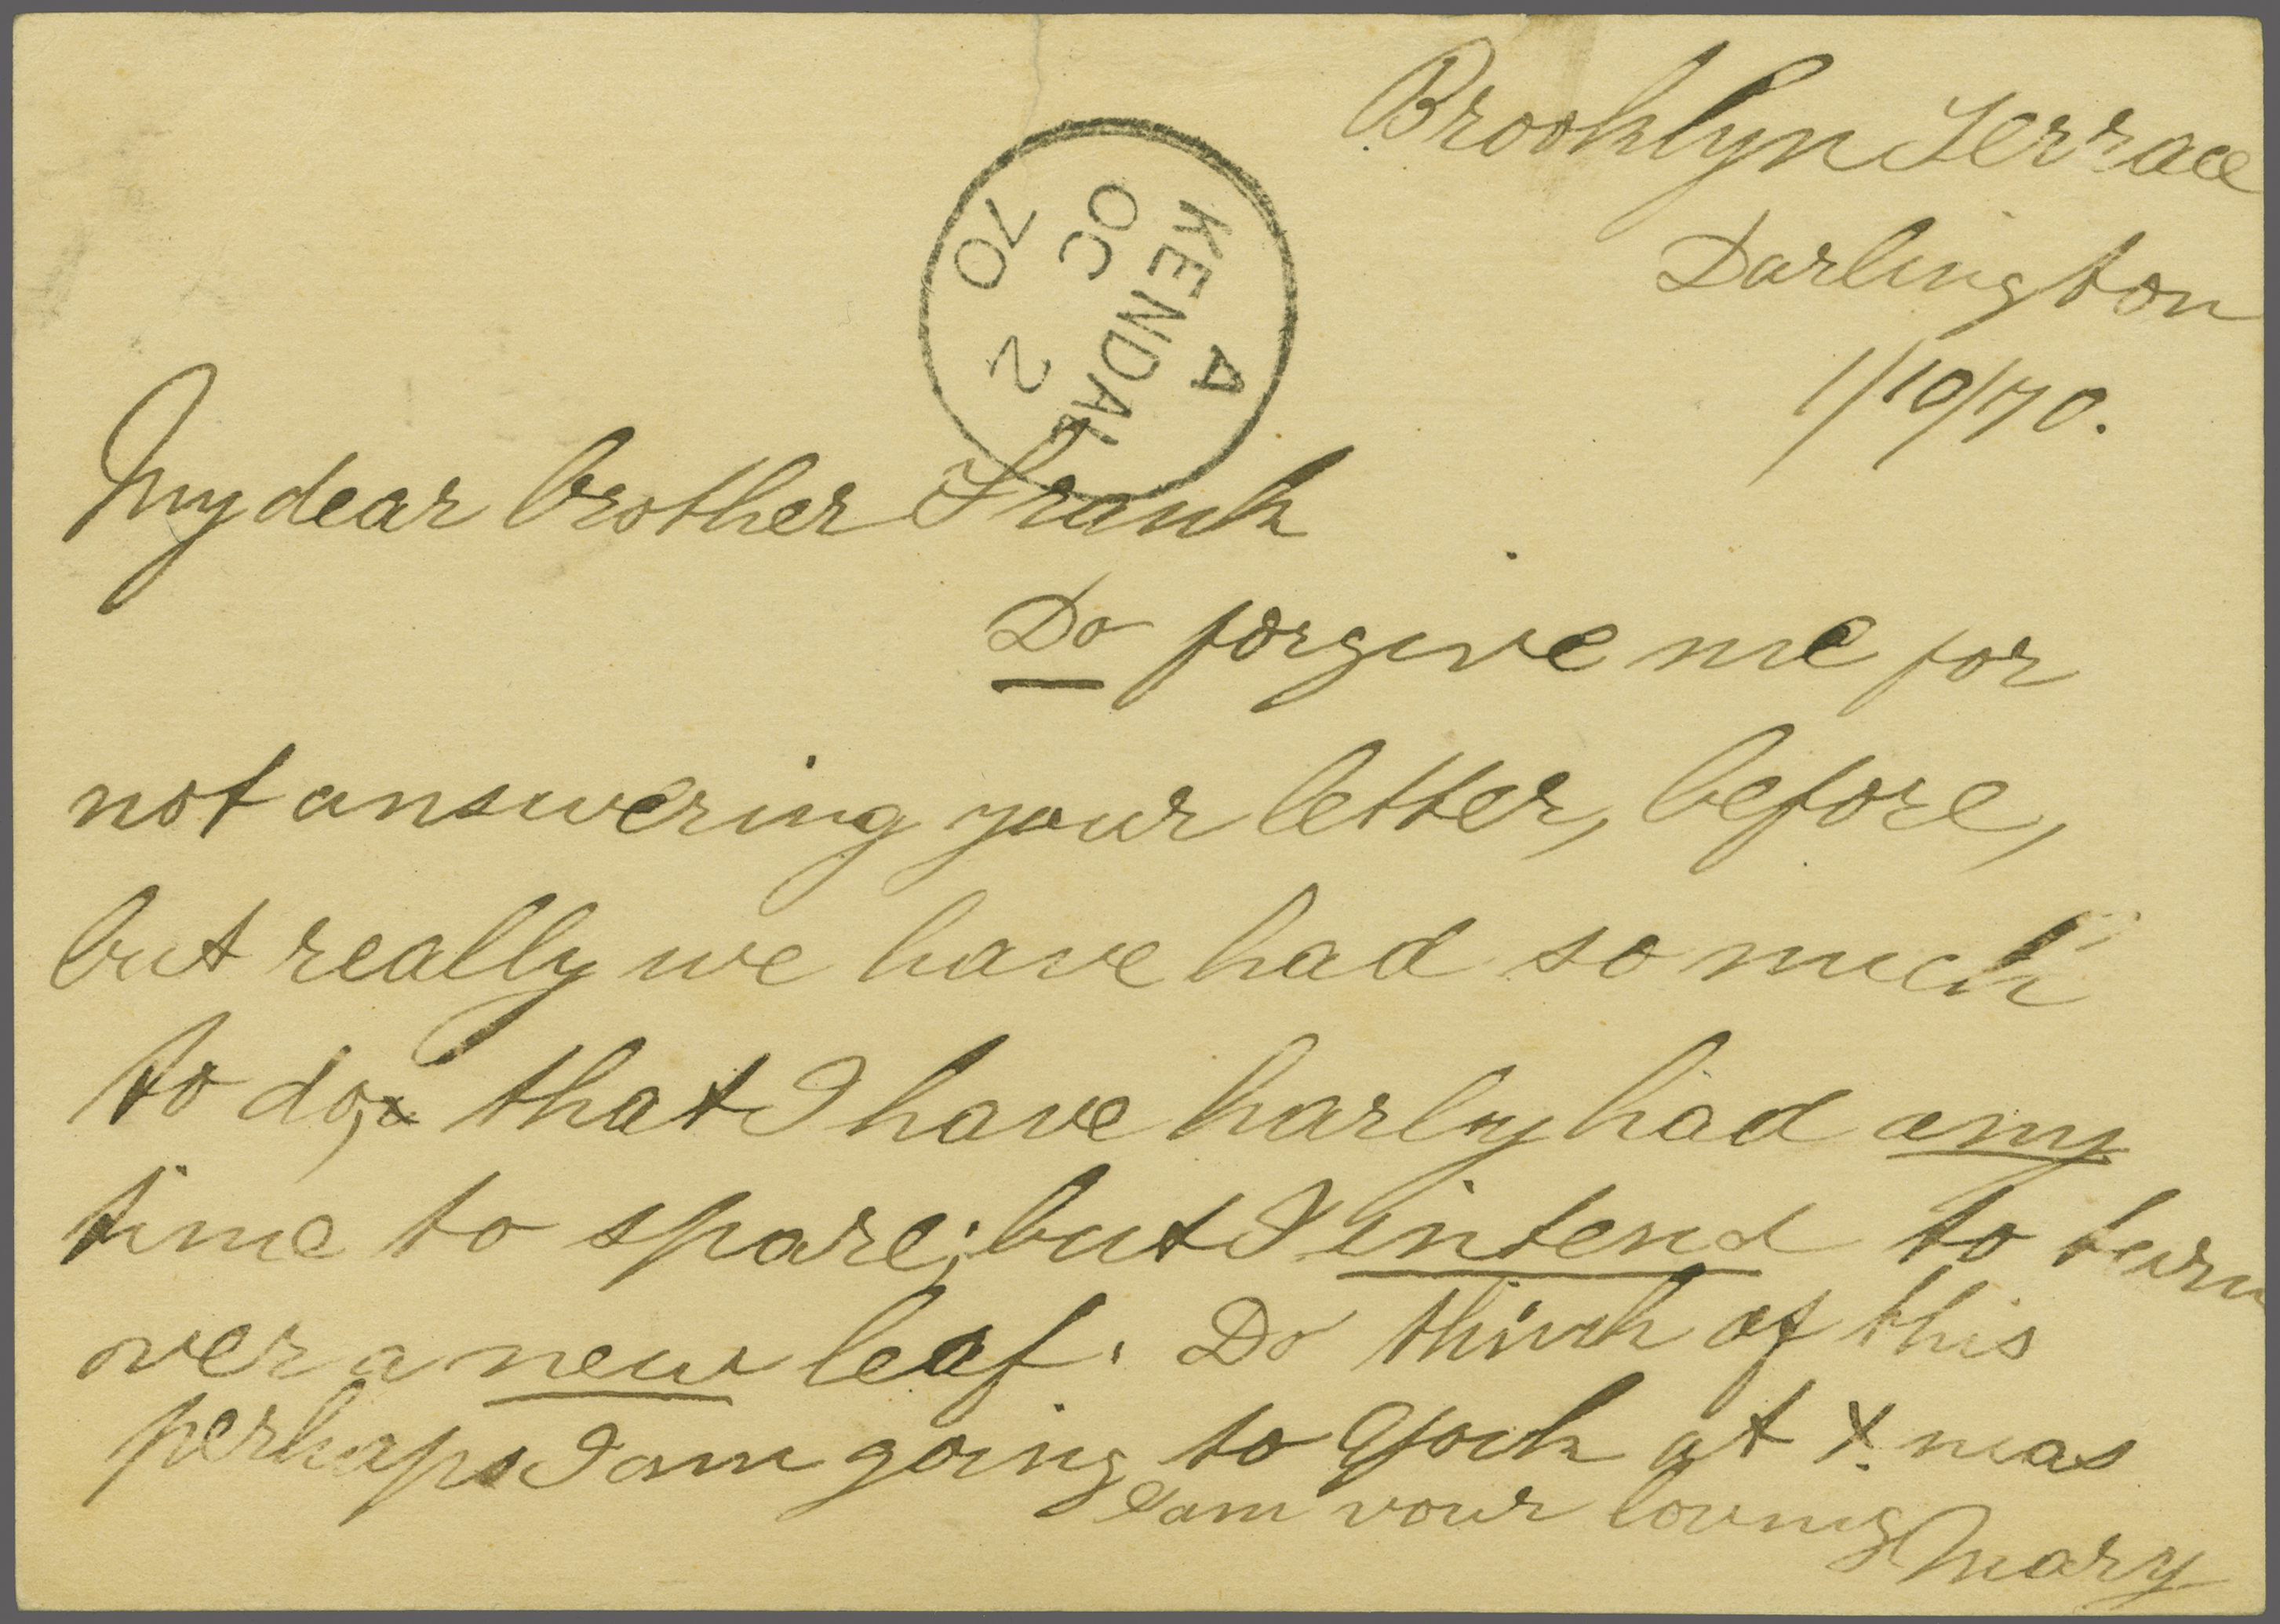 Brooklyn Terrace
Darlington
1/10/70.
A
KENDAL
OC 2
70
My dear brother Frank
Do forgive me for
not answering your letter, before,
but really we have had so much
to do, that I have harly had any
time to spare; but I intend to turn
over a new leaf. Do think of this
perhaps I am going to York at X.mas
I am your loving Mary